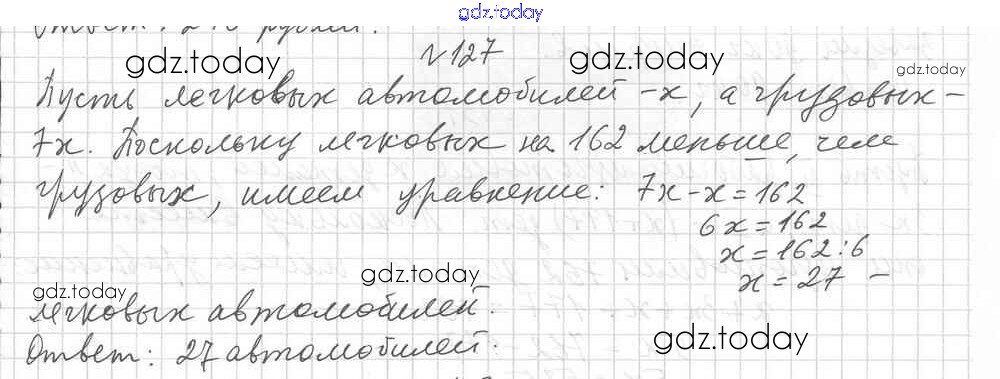 gdz.today
Ответ: 2 рублей.
№127
gdz.today gdz.today gdz.today
Пусть легковых автомобилей - x, а грузовых -
7x. Поскольку легковых на 162 меньше, чем
грузовых, имеем уравнение: 7x - x = 162
6x = 162
x = 162 : 6
x = 27 -
gdz.today gdz.today
легковых автомобилей.
Ответ: 27 автомобилей.
gdz.today